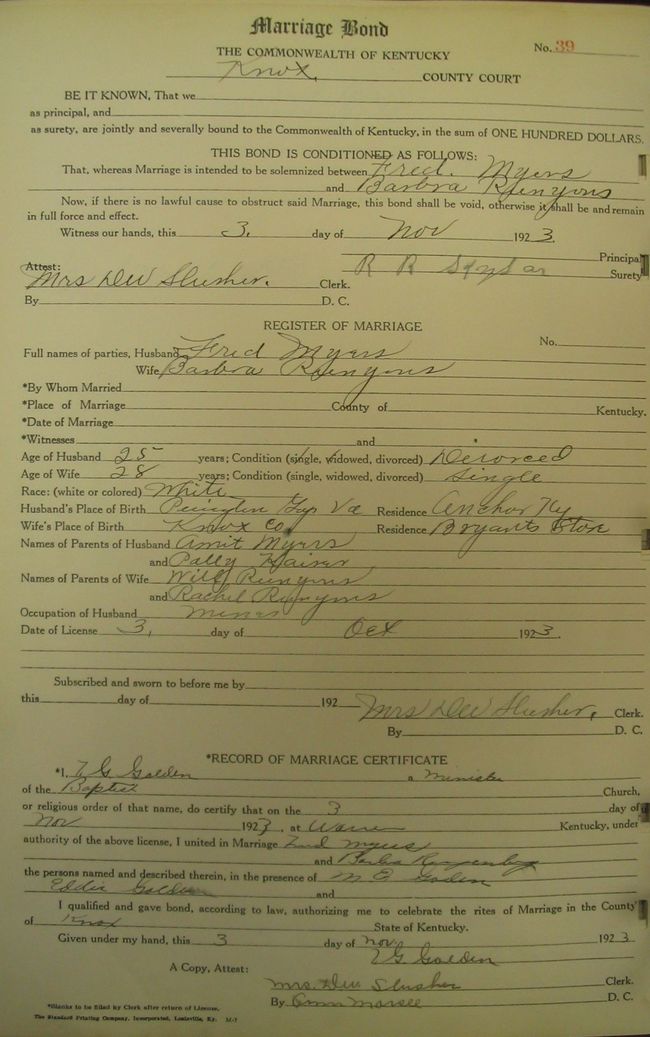 Marriage Bond
THE COMMONWEALTH OF KENTUCKY
No. 39
Knox, COUNTY COURT
BE IT KNOWN, That we
as principal, and
as surety, are jointly and severally bound to the Commonwealth of Kentucky, in the sum of ONE HUNDRED DOLLARS.
THIS BOND IS CONDITIONED AS FOLLOWS:
That, whereas Marriage is intended to be solemnized between Fred. Myers
and Barbra Runyons
Now, if there is no lawful cause to obstruct said Marriage, this bond shall be void, otherwise it shall be and remain
in full force and effect.
Witness our hands, this 3. day of Nov 1923.
Principal
Attest: R R Surety
Mrs Dew Slusher. Clerk.
By D. C.
REGISTER OF MARRIAGE
No.
Full names of parties, Husband Fred Myers
Wife Barbra Runyons
*By Whom Married
*Place of Marriage County of Kentucky.
*Date of Marriage
*Witnesses and
Age of Husband 25 years; Condition (single, widowed, divorced) Devorced
Age of Wife 28 years; Condition (single, widowed, divorced) Single
Race: (white or colored) White
Husband's Place of Birth Gap Va Residence Anchor Ky
Wife's Place of Birth Knox Co. Residence Bryants Store
Names of Parents of Husband Myers
and
Names of Parents of Wife Will Runyons
and Rachel Runyons
Occupation of Husband
Date of License 3, day of Oct 1923.
Subscribed and sworn to before me by
this day of 192 Mrs Dew Slusher, Clerk.
By D. C.
*RECORD OF MARRIAGE CERTIFICATE
*I, G Golden a Minister
of the Baptist Church,
or religious order of that name, do certify that on the 3 day of
Nov 1923, at Warren Kentucky, under
authority of the above license, I united in Marriage Fred Myers
and
the persons named and described therein, in the presence of M E Golden
Eddie Golden and
I qualified and gave bond, according to law, authorizing me to celebrate the rites of Marriage in the County
of Knox State of Kentucky.
Given under my hand, this 3 day of Nov 1923
G Golden
A Copy, Attest: Mrs. Dew Slusher Clerk.
By D. C.
*Blanks to be filled by Clerk after return of License.
The Standard Printing Company, Incorporated, Louisville, Ky.